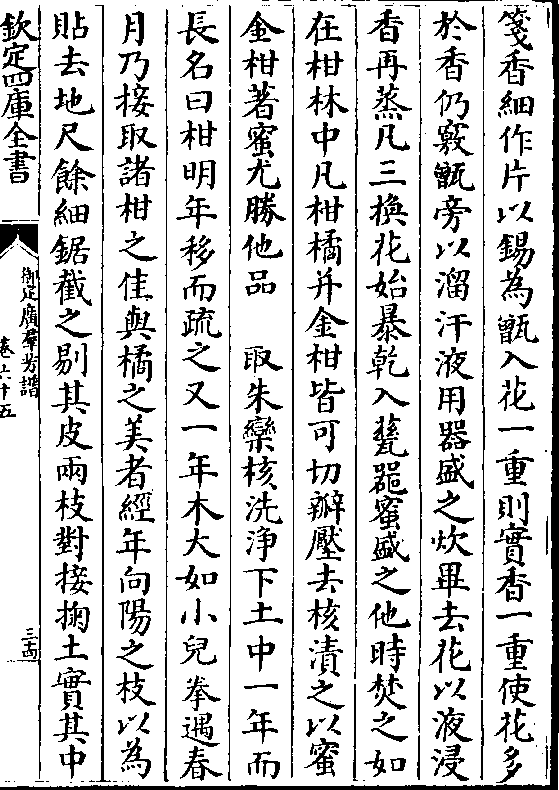 箋香細作片以錫為甑入花一重則實香一重使花多
於香仍竅甑旁以溜汗液用器盛之炊畢去花以液浸
香再蒸凡三換花始暴乾入甆噐蜜盛之他時焚之如
在柑林中凡柑橘并金柑皆可切瓣壓去核漬之以蜜
金柑著蜜尤勝他品 取朱欒核洗淨下土中一年而
長名曰柑明年移而疏之又一年木大如小兒拳遇春
月乃接取諸柑之佳與橘之美者經年向陽之枝以為
貼去地尺餘細鋸截之剔其皮兩枝對接掬土實其中
欽定四庫全書
御定廣羣芳譜
卷六十五
三十四